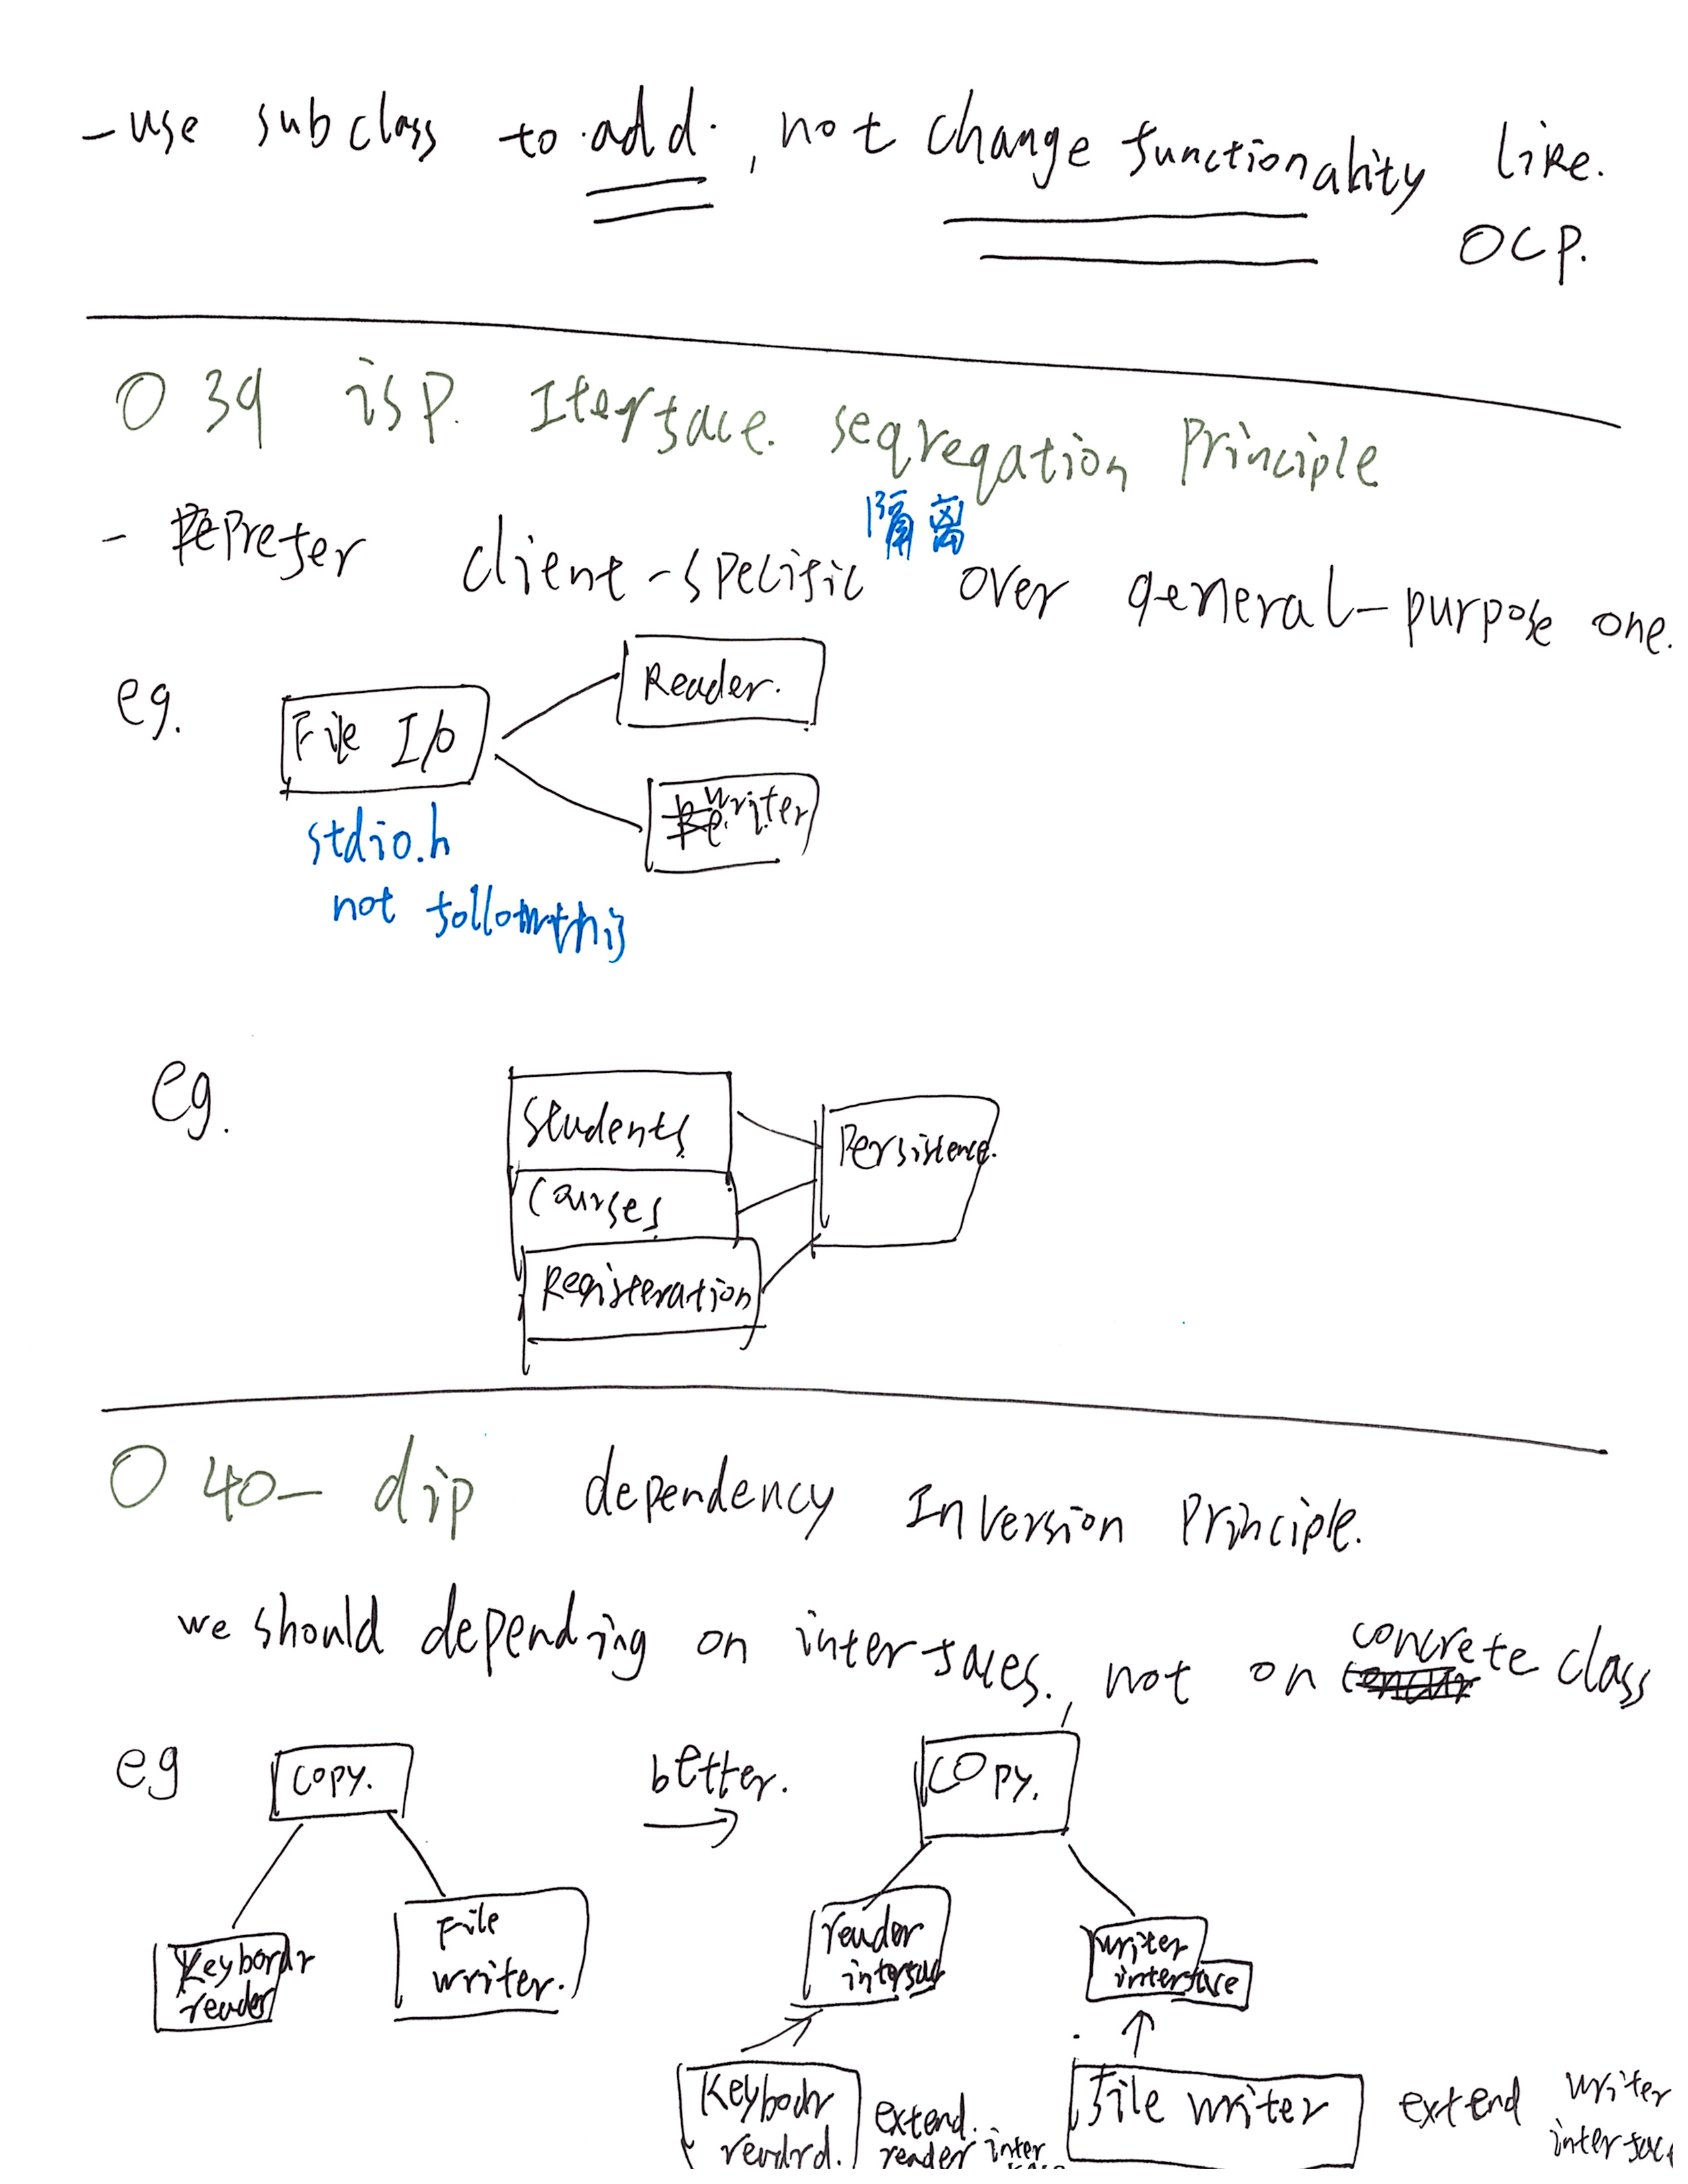 - use subclass to add, not change functionality like.
OCP.
O 39 isp. Iterface. seqregation Principle
隔离
- Prefer client-specific over general-purpose one.
eg.
File I/o
Reader.
writer
stdio.h
not follow this
eg.
Students
Courses
Registeration
Persistence.
O 40- dip dependency Inversion Principle.
we should depending on interfaces, not on concrete class
eg
copy.
better.
copy.
Keybordr
reader
File
writer.
reader
interface
writer
interface
Keyboar
extend.
reader inter
file writer
extend writer
interface